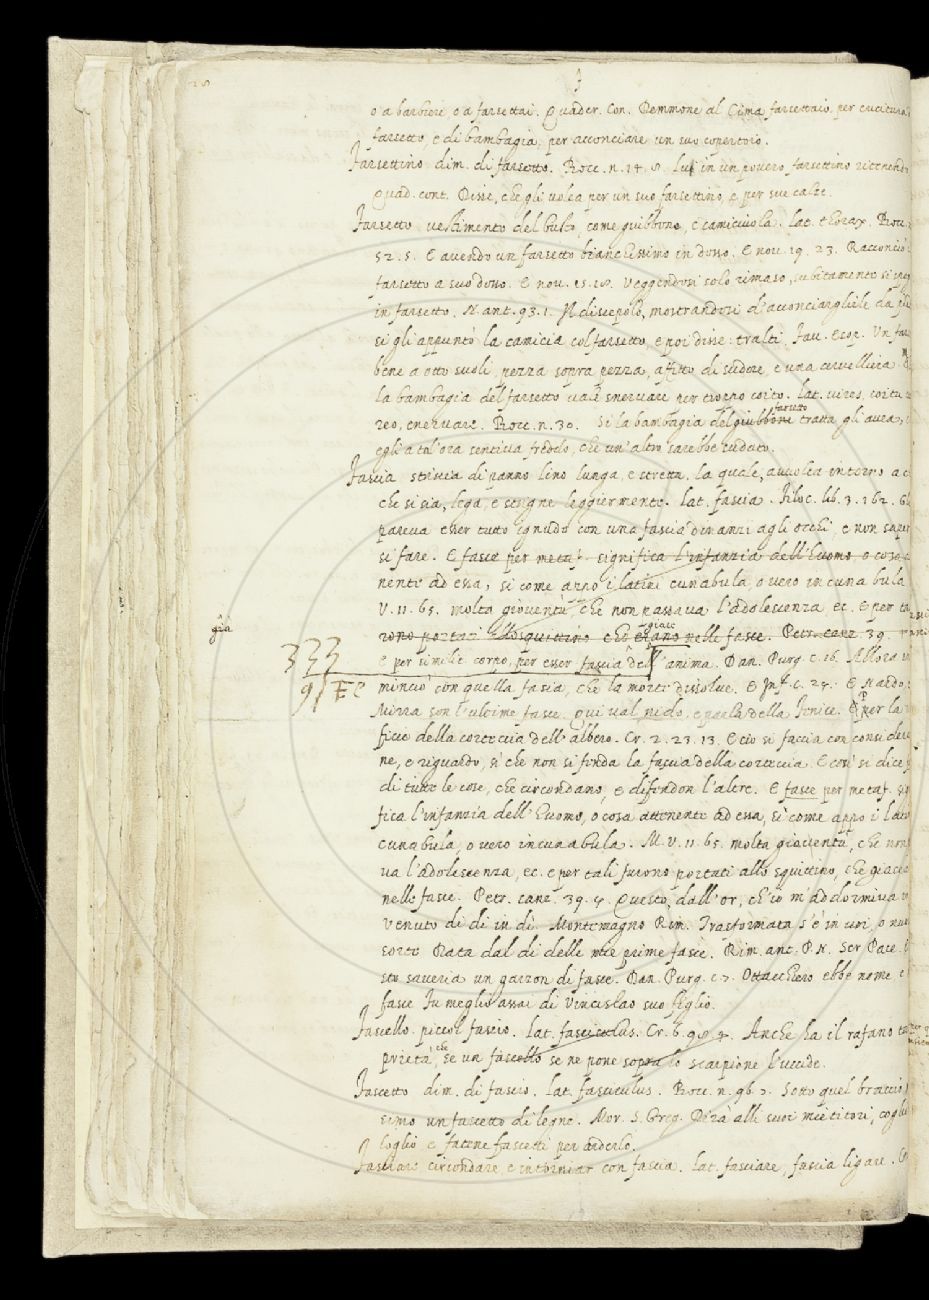 o a barbieri o a farsettai. Quader. Con. Demmone al Cima farsettaio, per cucitura
farsetto, e di bambagia, per acconciare un suo copertoio.
Farsettino dim. di farsetto. Bocc. n. 14. 8. Lui in un povero farsettino ritenendo
Quad. cont. Disse, che gli volea per un suo farsettino, e per sue calze.
Farsetto vestimento del busto, come giubbone, e camiciuola. Lat. thorax. Bocc.
52. 5. E avendo un farsetto bianchissimo in dosso. E nov. 19. 23. Racconciò
farsetto a suo dosso. E nov. 15. 18. Veggendosi solo rimaso, subitamente si
in farsetto. N. ant. 93. 1. mostrandosi d'acconciargliele da
si gli appuntò la camicia col farsetto, e poi disse: tralti, Tav. Un
bene a otto suoli, pezza sopra pezza, e una cervelliera
la bambagia del farsetto vale snervare per troppo coito. Lat. vires, coitu
farsetto
reo, enervare. Bocc. n. 30. Si la bambagia del giubbone tratta gli avea,
egli a tal'ora sentiva freddo, che un'altro sarebbe sudato.
Fascia striscia di panno lino lunga, e stretta, la quale, avvolta intorno a
che si sia, lega, e strigne leggiermente. Lat. fascia. Filoc. lib. 3. 162.
pareva esser tutto ignudo con una fascia dinanzi agli occhi, e non
si fare. E fasce per metaf. significa l'infanzia dell'huomo, o cosa
nente ad essa, si come appo i latini cunabula, o vero incunabula
V. 11. 65. molta gioventù che non passava l'adolescenza ec. e per
già giace
rono portati allo squittino che erano nelle fasce. Petr. canz. 39.
333 e per similit. corpo, per esser fascia dell'anima. Dan. Purg. c. 16. Allora
91 FE minciò con quella fascia, che la morte dissolve. E Inf. c. 24.
Mirra son l'ultime fasce. Qui val nido, e parla della fenice. E per la
ficie della corteccia dell'albero. Cr. 2. 23. 13. E ciò si faccia con
ne, e riguardo, sì che non si fenda la fascia della corteccia. E così si dice
di tutte le cose, che circondano, e difendon l'altre. E fasce per metaf.
fica l'infanzia dell'huomo, o cosa attenente ad essa, sì come appo i
cunabula, o vero incunabula. M. V. 11. 65. molta gioventù, che non
va l'adolescenza, ec. e per tali furono portati allo squittino, che
nelle fasce. Petr. canz. 39. 4. Questo, dall'or, ch'io m'addormiva
venuto di dì in dì. Montemagno Rim. Trasformata s'è in voi, o
sorte data dal dì delle mie prime fasce. Rim. ant. P. N. Ser Pace.
sto saveria un garzon di fasce. Dan. Purg. c. 7. Ottachero ebbe nome
fasce fu meglio assai di Vincislao suo figlio.
Fascello. piccol fascio. Lat. fasciculus. Cr. 6. Anche ha il rafano
prietà, che se un fascello se ne pone sopra lo scarpione l'uccide.
Fascetto dim. di fascio. Lat. fasciculus. Bocc. n. Sotto quel braccio
simo un fascetto di legne. Mor. S. Greg. Dirà alli suoi mietitori,
loglio e fatene fascetti per arderlo.
Fasciare circondare, e intorniar con fascia. Lat. fasciare, fascia ligare.